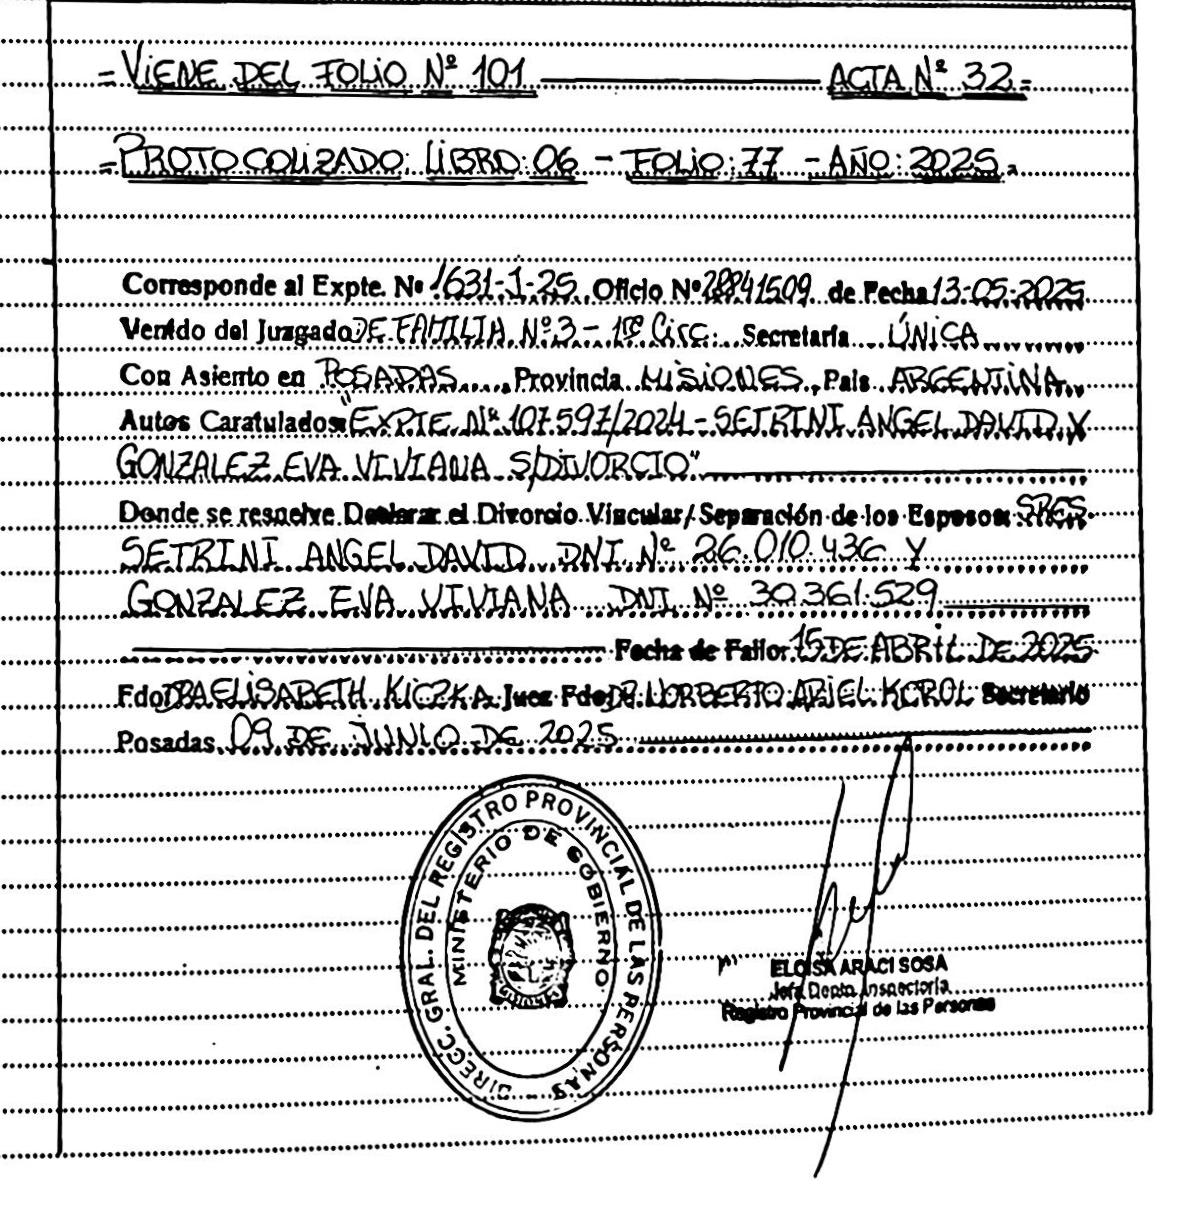 =VIENE DEL FOLIO Nº 101 ACTA Nº 32=
=PROTOCOLIZADO: LIBRO: 06 - FOLIO: 77 - AÑO: 2025.
Corresponde al Expte. Nº 1631-J-25 Oficio Nº 28841509 de Fecha 13-05-2025
Venido del Juzgado DE FAMILIA Nº 3 - 1ra Circ. Secretaría ÚNICA
Con Asiento en POSADAS Provincia MISIONES País ARGENTINA
Autos Caratulados: "EXPTE. Nº 107.597/2024 - SETRINI ANGEL DAVID Y
GONZALEZ EVA VIVIANA S/DIVORCIO"
Donde se resuelve Declarar el Divorcio Vincular/Separación de los Esposos: SRES.
SETRINI ANGEL DAVID DNI Nº 26.010.436 Y
GONZALEZ EVA VIVIANA DNI Nº 30.361.529
Fecha de Fallo: 15 DE ABRIL DE 2025
Fdo: DRA ELISABETH KICZKA Juez Fdo: DR. NORBERTO ARIEL KOROL Secretario
Posadas, 09 DE JUNIO DE 2025
DIRECC. GRAL. DEL REGISTRO PROVINCIAL DE LAS PERSONAS -
MINISTERIO DE GOBIERNO
ELOISA ARACI SOSA
Jefa Depto. Inspectoría
Registro Provincial de las Personas